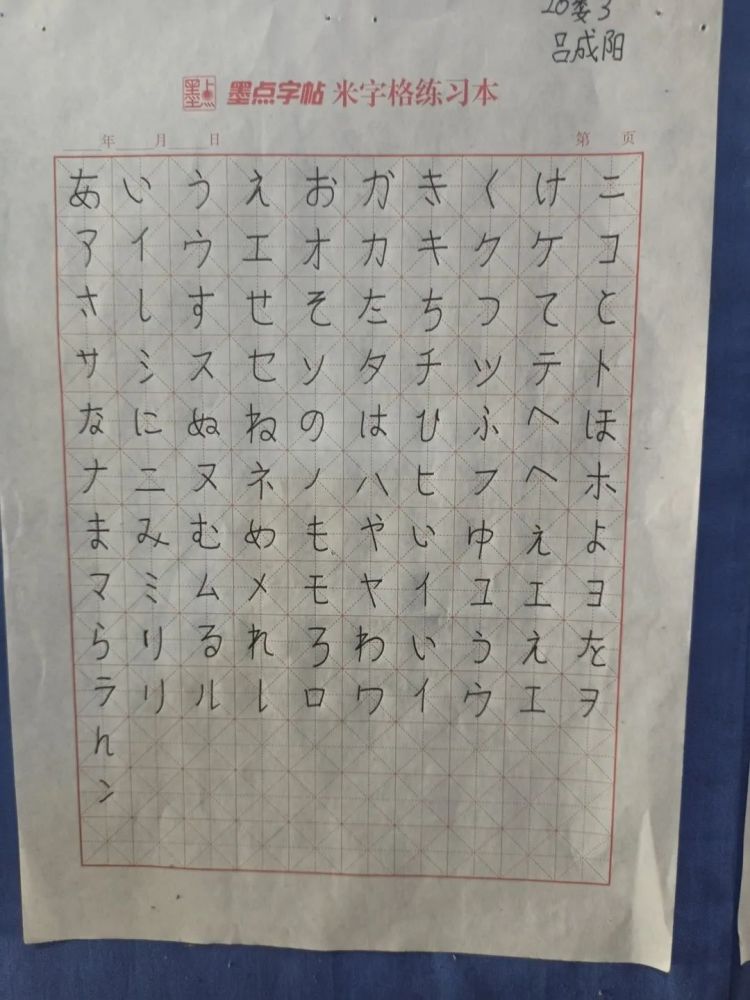 20委3
吕成阳
墨点 墨点字帖 米字格练习本
年 月 日 第 页
あ い う え お か き く け こ
ア イ ウ エ オ カ キ ク ケ コ
さ し す せ そ た ち つ て と
サ シ ス セ ソ タ チ ツ テ ト
な に ぬ ね の は ひ ふ へ ほ
ナ ニ ヌ ネ ノ ハ ヒ フ ヘ ホ
ま み む め も や い ゆ え よ
マ ミ ム メ モ ヤ イ ユ エ ヨ
ら り る れ ろ わ い う え を
ラ リ ル レ ロ ワ イ ウ エ ヲ
ん
ン